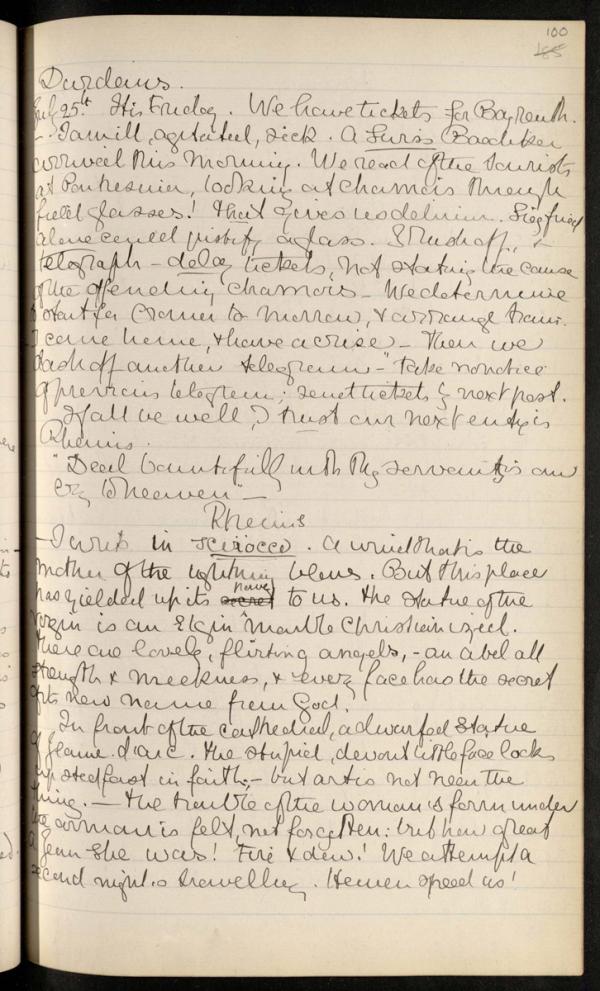 100
185
Durdans.
July 25th It is Friday. We have tickets for Bayreuth.
– I am ill, agitated, sick. A Swiss Baedeker
arrived this morning. We read of the tourists
at Pontresina, looking at chamois through
field glasses! that gives us delirium. Siegfried
alone could justify a glass. I rush off, &
telegraph – delay tickets, not stating the cause
of the offending chamois – We determine
to start for Cromer to morrow, & arrange trains.
I come home, & have a crise – Then we
dash off another telegram – "Take no notice
of previous telegram; send tickets by next post.
If all be well, I trust our next entry is
Rheims.
"Deal bountifully with Thy servant" is our
cry to heaven" –
Rheims
– I write in scirocco. A wind that is the
mother of the lightning blows. But this place
has yielded up its secret nave to us. the statue of the
virgin is an Elgin marble Christianized.
there are lovely, flirting angels, – an abel all
strength & meekness, & every face has the secret
of its new name from God.
In front of the cathedral, a dwarfed statue
of Jeanne d'arc. the stupid, devout little face looks
up steadfast in faith; – but art is not near the
thing. – the trouble of the woman's form under
the armour is felt, not forgotten: but how great
a Jean she was! Fire & dew! We attempt a
second night's travelling. Heaven speed us!